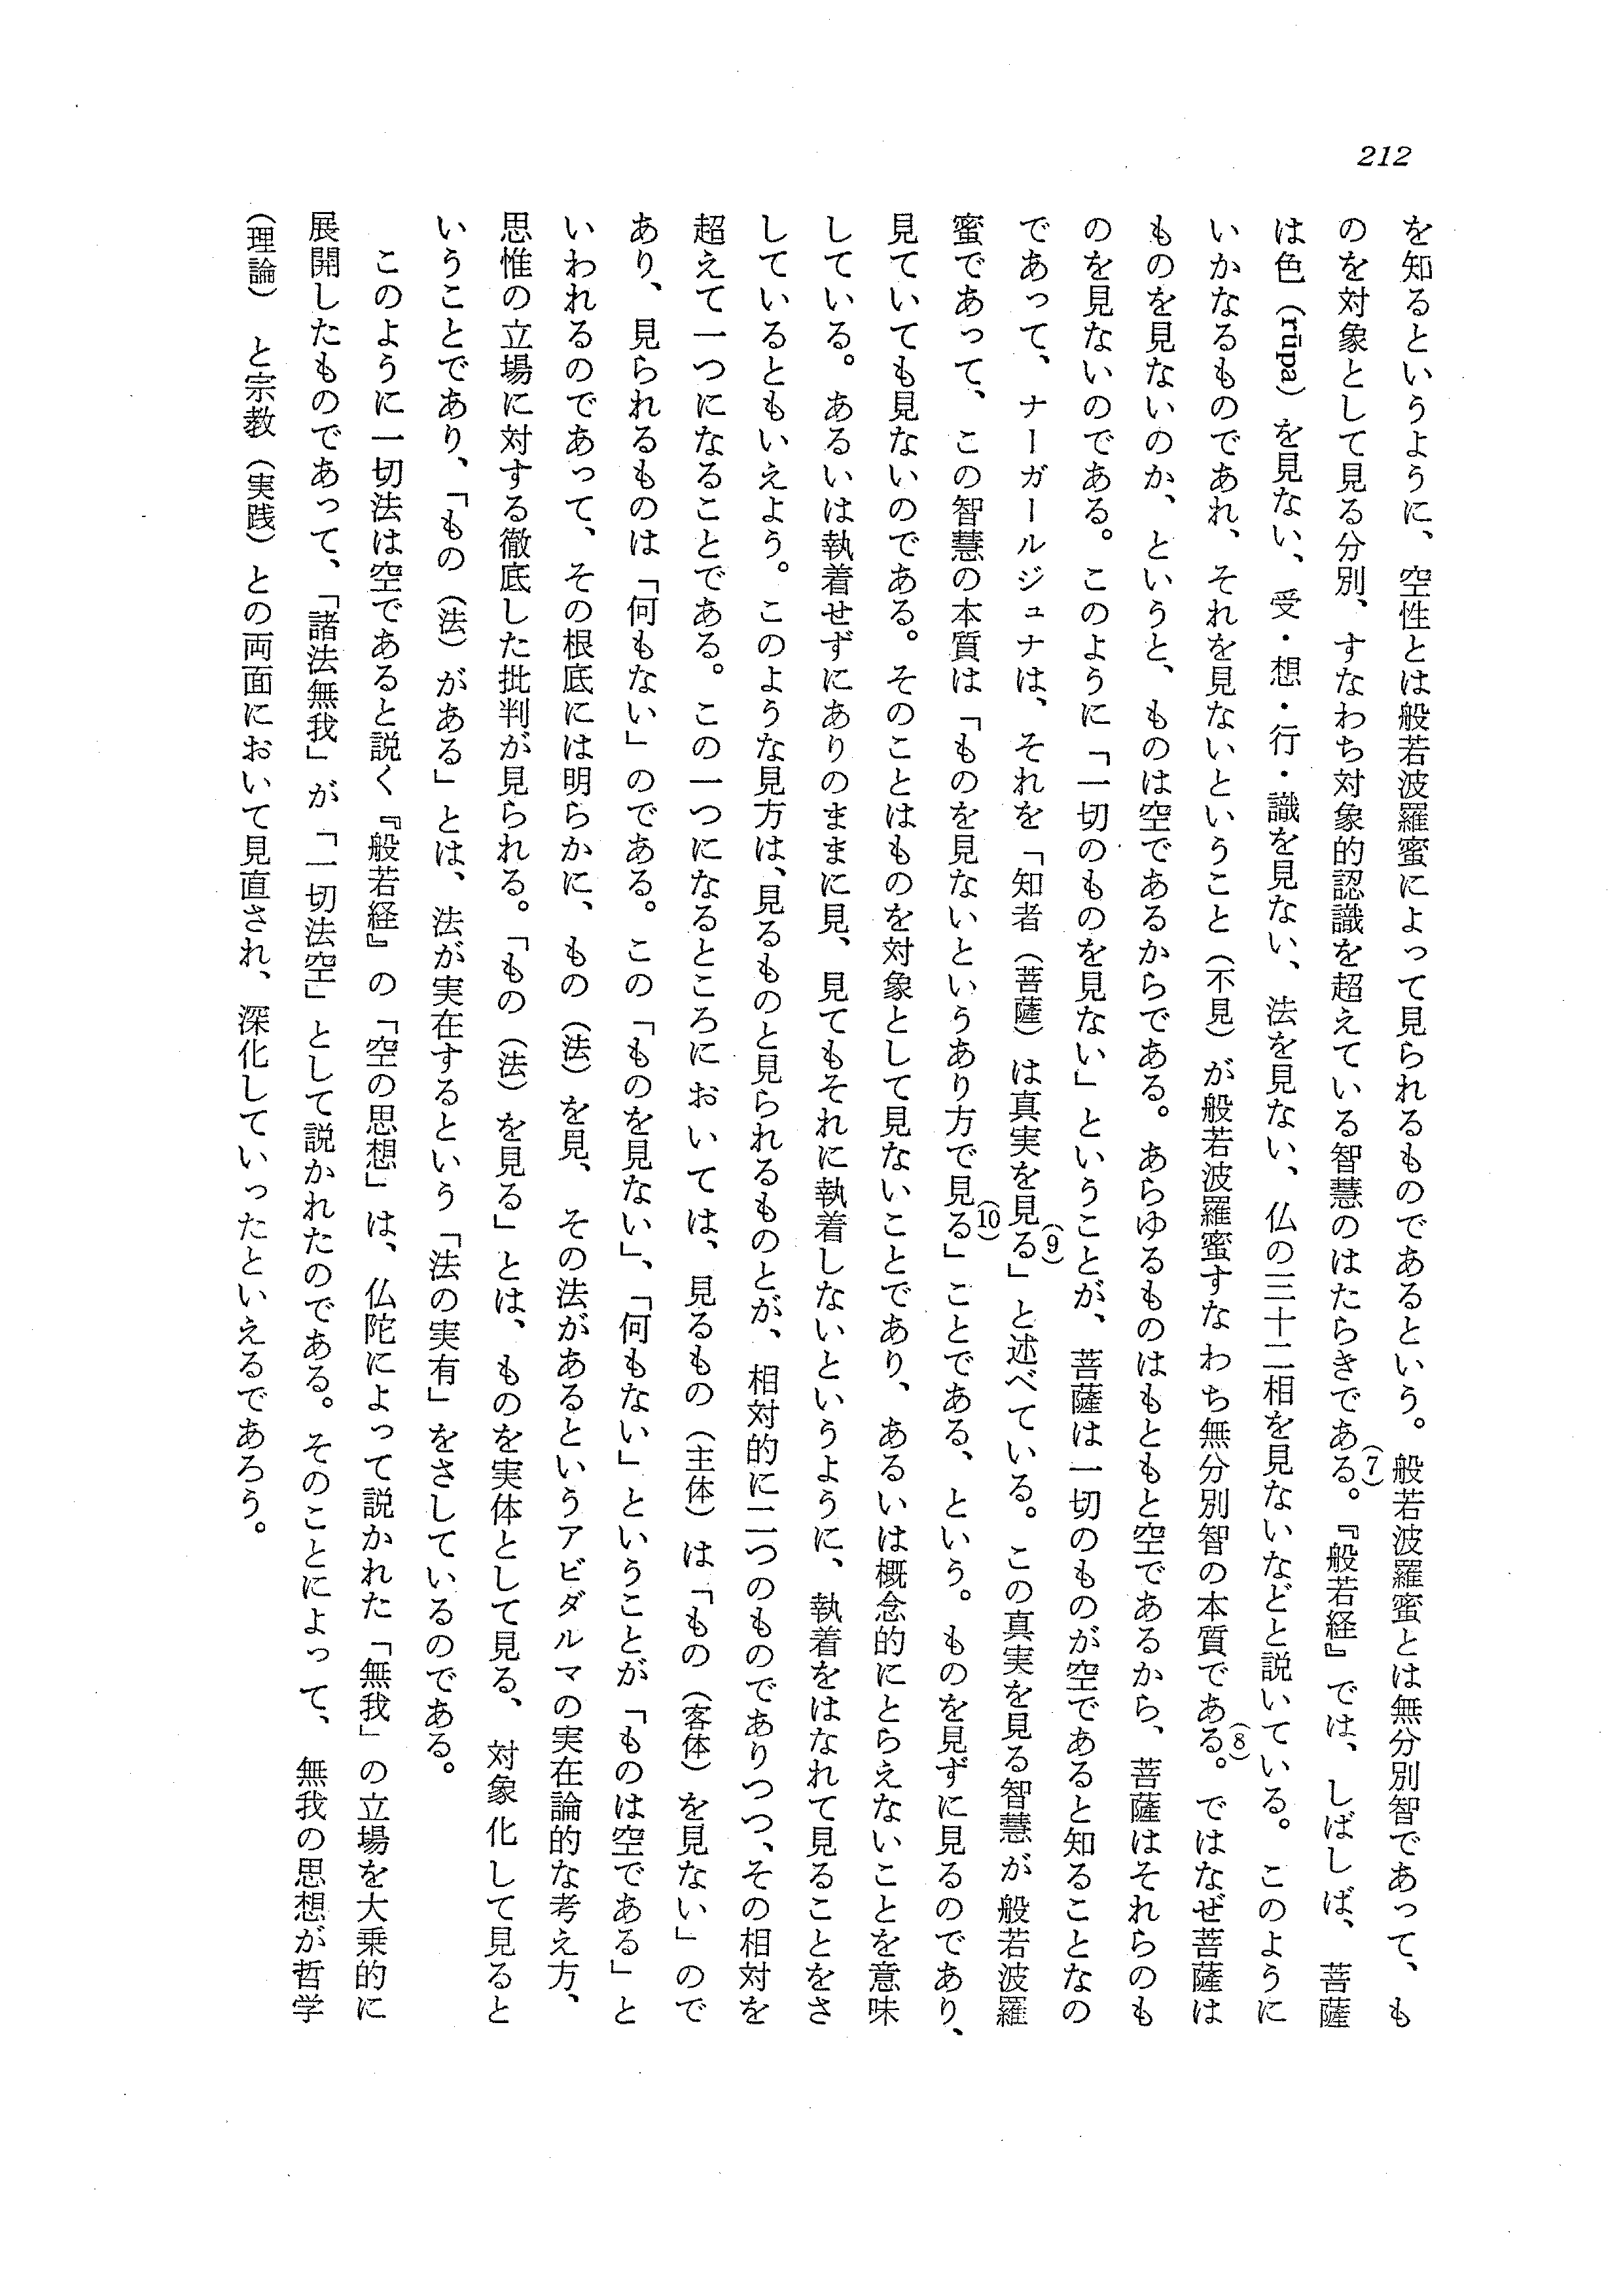 212
を知るというように、空性とは般若波羅蜜によって見られるものであるという。般若波羅蜜とは無分別智であって、も
のを対象として見る分別、すなわち対象的認識を超えている智慧のはたらきである。(7)『般若経』では、しばしば、菩薩
は色(rūpa)を見ない、受・想・行・識を見ない、法を見ない、仏の三十二相を見ないなどと説いている。このように
いかなるものであれ、それを見ないということ(不見)が般若波羅蜜すなわち無分別智の本質である。(8)ではなぜ菩薩は
ものを見ないのか、というと、ものは空であるからである。あらゆるものはもともと空であるから、菩薩はそれらのも
のを見ないのである。このように「一切のものを見ない」ということが、菩薩は一切のものが空であると知ることなの
であって、ナーガールジュナは、それを「知者(菩薩)は真実を見る」(9)と述べている。この真実を見る智慧が般若波羅
蜜であって、この智慧の本質は「ものを見ないというあり方で見る」(10)ことである、という。ものを見ずに見るのであり、
見ていても見ないのである。そのことはものを対象として見ないことであり、あるいは概念的にとらえないことを意味
している。あるいは執着せずにありのままに見、見てもそれに執着しないというように、執着をはなれて見ることをさ
しているともいえよう。このような見方は、見るものと見られるものとが、相対的に二つのものでありつつ、その相対を
超えて一つになることである。この一つになるところにおいては、見るもの(主体)は「もの(客体)を見ない」ので
あり、見られるものは「何もない」のである。この「ものを見ない」、「何もない」ということが「ものは空である」と
いわれるのであって、その根底には明らかに、もの(法)を見、その法があるというアビダルマの実在論的な考え方、
思惟の立場に対する徹底した批判が見られる。「もの(法)を見る」とは、ものを実体として見る、対象化して見ると
いうことであり、「もの(法)がある」とは、法が実在するという「法の実有」をさしているのである。
このように一切法は空であると説く『般若経』の「空の思想」は、仏陀によって説かれた「無我」の立場を大乗的に
展開したものであって、「諸法無我」が「一切法空」として説かれたのである。そのことによって、無我の思想が哲学
(理論)と宗教(実践)との両面において見直され、深化していったといえるであろう。